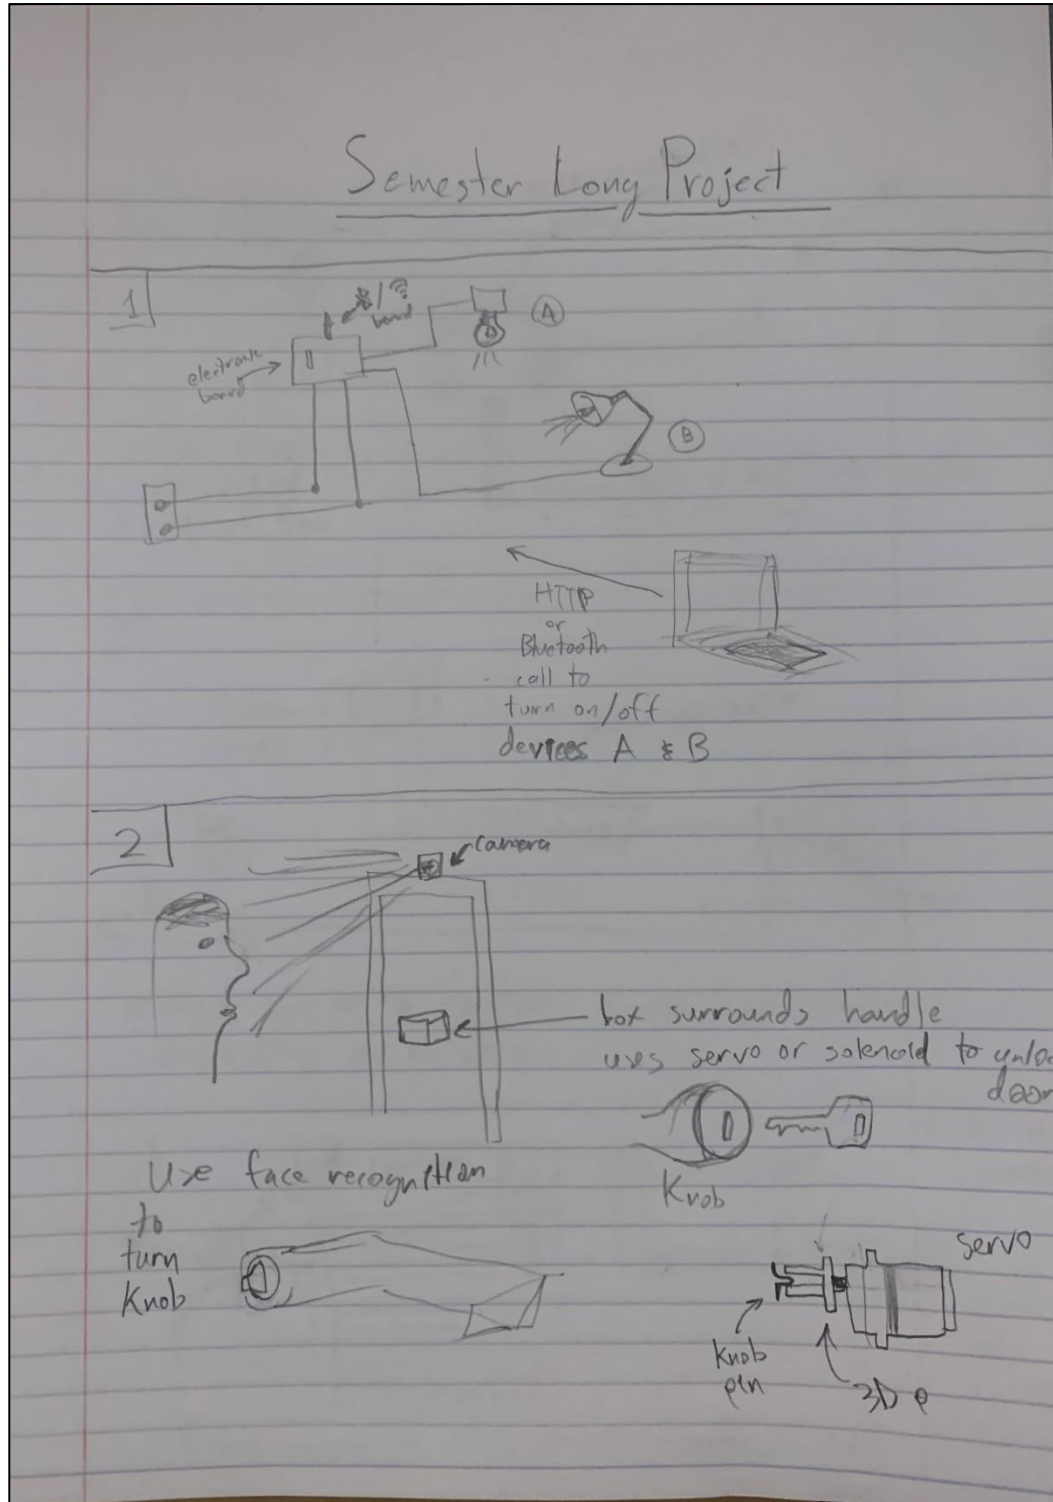 Semester Long Project
1
electronic
board
board
A
B
HTTP
or
Bluetooth
call to
turn on/off
devices A & B
2
camera
box surrounds handle
uses servo or solenoid to unloc
door
Knob
Use face recognition
to
turn
Knob
servo
Knob
pin
3D P